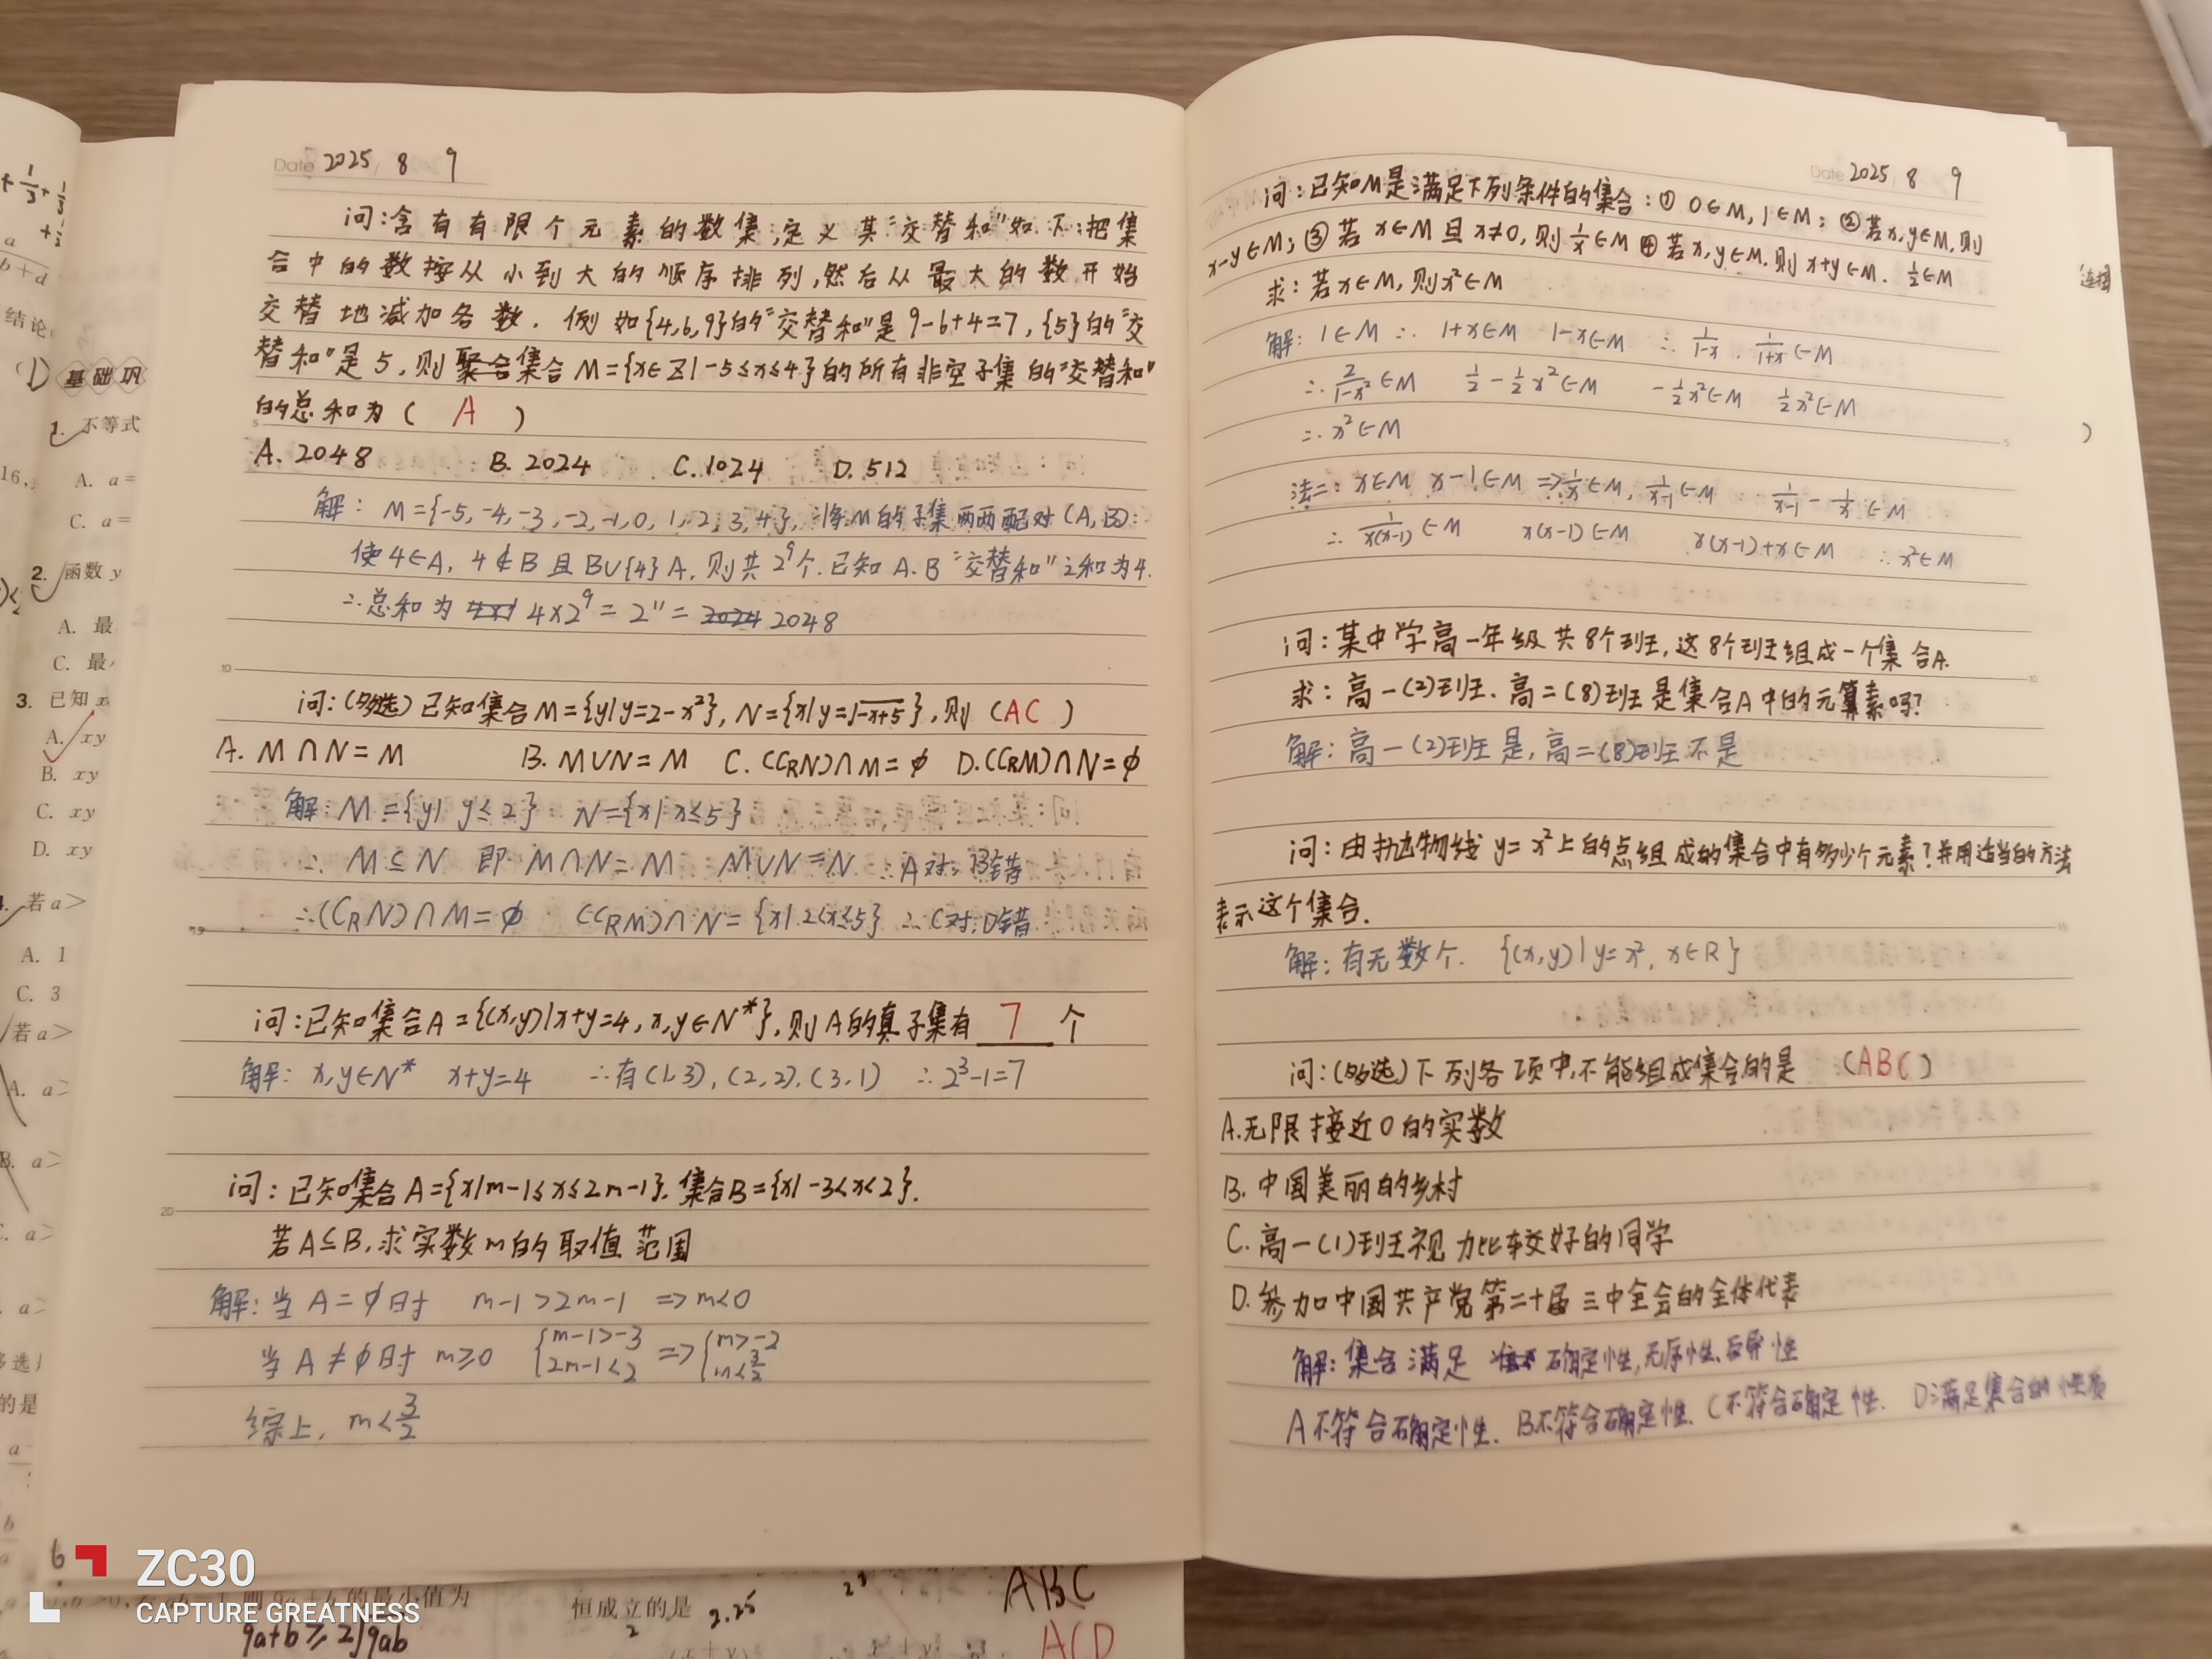 Date 2025 8 9
问:含有有限个元素的数集,定义其"交替和"如下:把集
合中的数按从小到大的顺序排列,然后从最大的数开始
交替地减加各数.例如{4,6,9}的"交替和"是9-6+4=7,{5}的"交
替和"是5,则集合M={x∈Z|-5≤x≤4}的所有非空子集的"交替和"
的总和为( A )
A. 2048 B. 2024 C. 1024 D. 512
解: M={-5,-4,-3,-2,-1,0,1,2,3,4},将M的子集两两配对(A,B):
使4∈A, 4∉B且B∪{4} A.则共2⁹个.已知A.B"交替和"之和为4.
∴总和为 4×2⁹=2¹¹= 2048
问:(多选)已知集合M={y|y=2-x²},N={x|y=√-x+5},则(AC)
A. M∩N=M B. M∪N=M C. (CRN)∩M=φ D.(CRM)∩N=φ
解: M={y| y≤2} N={x|x≤5}
∴ M⊆N 即 M∩N=M. M∪N=N ∴A对, B错
∴(CRN)∩M=φ (CRM)∩N={x|2<x≤5} ∴C对,D错
问:已知集合A={(x,y)|x+y=4,x,y∈N*},则A的真子集有 7 个
解: x,y∈N* x+y=4 ∴有(1,3),(2,2),(3,1) ∴2³-1=7
问:已知集合A={x|m-1≤x≤2m-1},集合B={x|-3<x<2}.
若A⊆B,求实数m的取值范围
解:当A=φ时 m-1>2m-1 ⇒m<0
当A≠φ时 m≥0 {m-1>-3 2m-1<2 ⇒{m>-2 m<3/2
综上, m<3/2
Date 2025 8 9
问:已知M是满足下列条件的集合:① 0∈M,1∈M; ②若x,y∈M,则
x-y∈M;③若x∈M且x≠0,则1/x∈M ④若x,y∈M.则x+y∈M. 1/2∈M
求:若x∈M,则x²∈M
解: 1∈M ∴ 1+x∈M 1-x∈M ∴ 1/1-x, 1/1+x∈M
∴ 2/1-x²∈M 1/2-1/2x²∈M -1/2x²∈M 1/2x²∈M
∴ x²∈M
法二: x∈M x-1∈M ⇒1/x∈M, 1/x-1∈M 1/x-1 - 1/x∈M
∴ 1/x(x-1)∈M x(x-1)∈M x(x-1)+x∈M ∴x²∈M
问:某中学高一年级共8个班,这8个班组成一个集合A.
求:高一(2)班.高二(8)班是集合A中的元素吗?
解:高一(2)班是,高二(8)班不是
问:由抛物线y=x²上的点组成的集合中有多少个元素?并用适当的方法
表示这个集合.
解:有无数个. {(x,y)|y=x², x∈R}
问:(多选)下列各项中,不能组成集合的是 (ABC)
A.无限接近0的实数
B.中国美丽的乡村
C.高一(1)班视力比较好的同学
D.参加中国共产党第二十届三中全会的全体代表
解:集合满足 确定性,无序性、互异性
A不符合确定性. B不符合确定性. C不符合确定性. D满足集合的性质
基础巩
1. 不等式
A. a=
C. a=
2. 函数 y
A. 最
C. 最
3. 已知 x
A. xy
B. xy
C. xy
D. xy
若a>
A. 1
C. 3
若a>
A. a>
B. a>
结论
的最小值为
9a+b≥2√9ab
恒成立的是
2.25
ABC
ACD
ZC30
CAPTURE GREATNESS